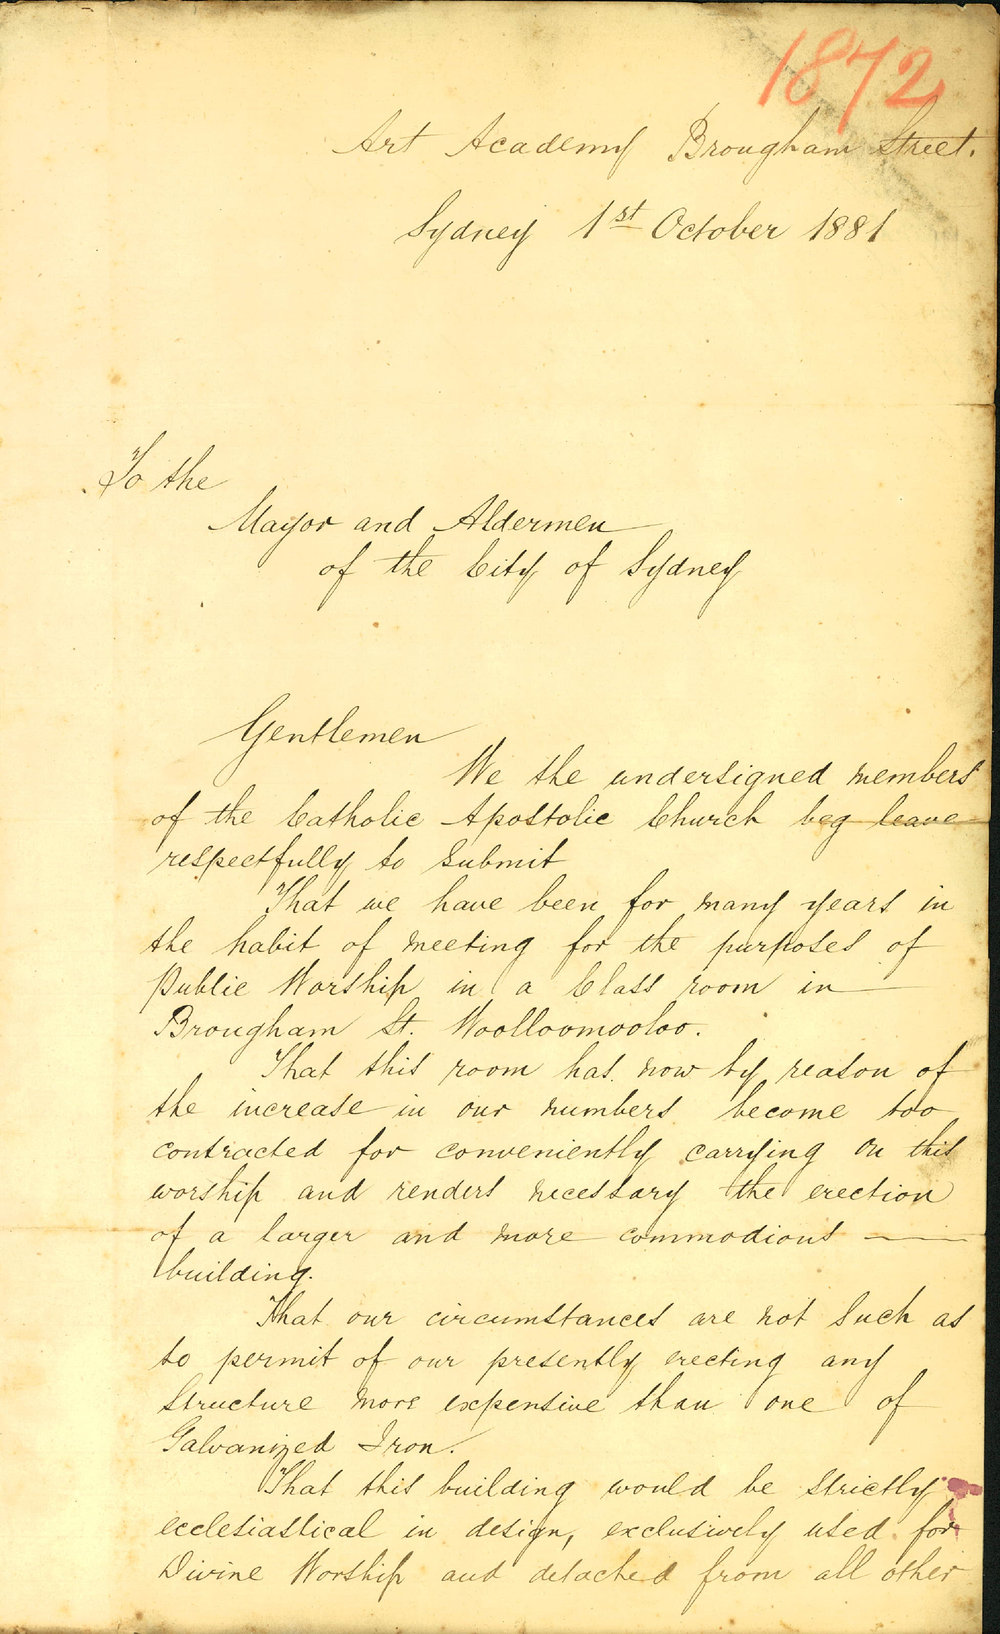 1872
Art Academy Brougham Street.
Sydney 1st October 1881
To the
Mayor and Aldermen
of the City of Sydney
Gentlemen
We the undersigned members
of the Catholic Apostolic Church beg leave
respectfully to submit
That we have been for many years in
the habit of meeting for the purposes of
Public Worship in a Class room in
Brougham St. Woolloomooloo.
That this room has now by reason of
the increase in our numbers become too
contracted for conveniently carrying on this
worship and renders necessary the erection
of a larger and more commodious
building.
That our circumstances are not such as
to permit of our presently erecting any
structure more expensive than one of
Galvanized Iron.
That this building would be strictly
ecclesiastical in design, exclusively used for
Divine Worship and detached from all other